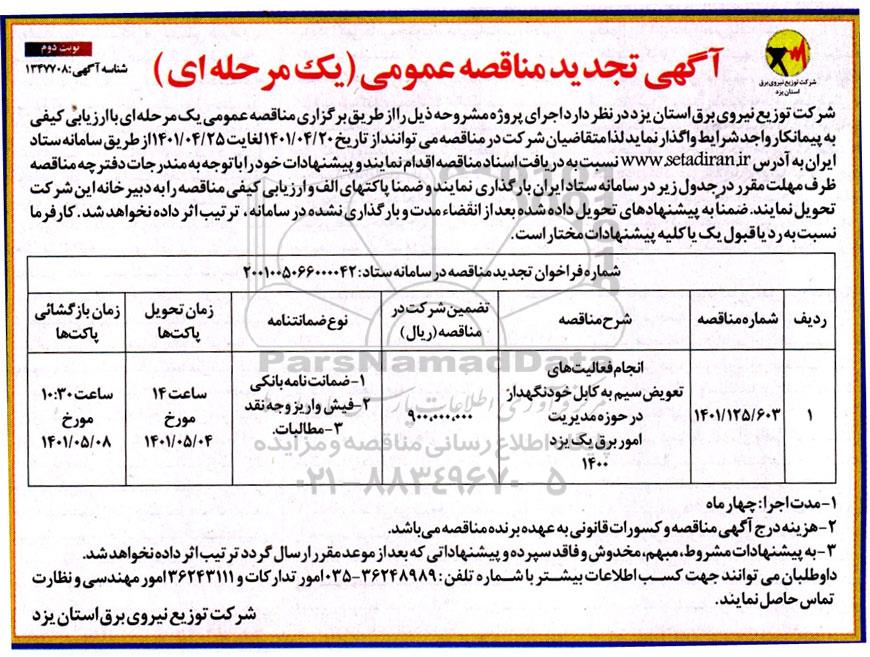 شرکت توزیع نیروی برق
استان یزد
آگهی تجدید مناقصه عمومی (یک مرحله ای)
نوبت دوم
شناسه آگهی: ۱۳۴۷۷۰۸
شرکت توزیع نیروی برق استان یزد در نظر دارد اجرای پروژه مشروحه ذیل را از طریق برگزاری مناقصه عمومی یک مرحله ای با ارزیابی کیفی
به پیمانکار واجد شرایط واگذار نماید لذا متقاضیان شرکت در مناقصه می توانند از تاریخ ۱۴۰۱/۰۴/۲۰ لغایت ۱۴۰۱/۰۴/۲۵ از طریق سامانه ستاد
ایران به آدرس www.setadiran.ir نسبت به دریافت اسناد مناقصه اقدام نمایند و پیشنهادات خود را با توجه به مندرجات دفترچه مناقصه
ظرف مهلت مقرر در جدول زیر در سامانه ستاد ایران بارگذاری نمایند و ضمنا پاکتهای الف و ارزیابی کیفی مناقصه را به دبیرخانه این شرکت
تحویل نمایند. ضمناً به پیشنهادهای تحویل داده شده بعد از انقضاء مدت و بارگذاری نشده در سامانه، ترتیب اثر داده نخواهد شد. کارفرما
نسبت به رد یا قبول یک یا کلیه پیشنهادات مختار است.
شماره فراخوان تجدید مناقصه در سامانه ستاد: ۲۰۰۱۰۰۵۰۶۶۰۰۰۰۴۲
ردیف
شماره مناقصه
شرح مناقصه
تضمین شرکت در
مناقصه (ریال)
نوع ضمانتنامه
زمان تحویل
پاکت‌ها
زمان بازگشائی
پاکت‌ها
۱
۱۴۰۱/۱۲۵/۶۰۳
انجام فعالیت‌های
تعویض سیم به کابل خودنگهدار
در حوزه مدیریت
امور برق یک یزد
۱۴۰۰
۹۰۰,۰۰۰,۰۰۰
۱-ضمانت نامه بانکی
۲-فیش واریز وجه نقد
۳-مطالبات.
ساعت ۱۴
مورخ
۱۴۰۱/۰۵/۰۴
ساعت ۱۰:۳۰
مورخ
۱۴۰۱/۰۵/۰۸
ParsNamadData
پایگاه اطلاع رسانی مناقصه و مزایده
۰۲۱-۸۸۳۴۹۶۷۰-۵
۱-مدت اجرا: چهار ماه
۲-هزینه درج آگهی مناقصه و کسورات قانونی به عهده برنده مناقصه می باشد.
۳-به پیشنهادات مشروط، مبهم، مخدوش و فاقد سپرده و پیشنهاداتی که بعد از موعد مقرر ارسال گردد ترتیب اثر داده نخواهد شد.
داوطلبان می توانند جهت کسب اطلاعات بیشتر با شماره تلفن: ۳۶۲۴۸۹۸۹-۰۳۵ امور تدارکات و ۳۶۲۴۳۱۱۱ امور مهندسی و نظارت
تماس حاصل نمایند.
شرکت توزیع نیروی برق استان یزد